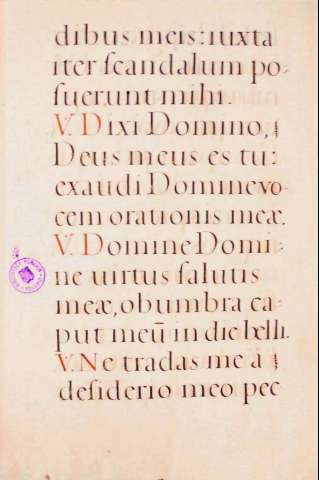 dibus meis: iuxta
iter scandalum po-
suerunt mihi.
V. Dixi Domino,
Deus meus es tu:
exaudi Domine vo
cem orationis meæ.
V. Domine Domi-
ne uirtus salutis
meæ, obumbra ca-
put meū in die belli.
V. Ne tradas me à
desiderio meo pec